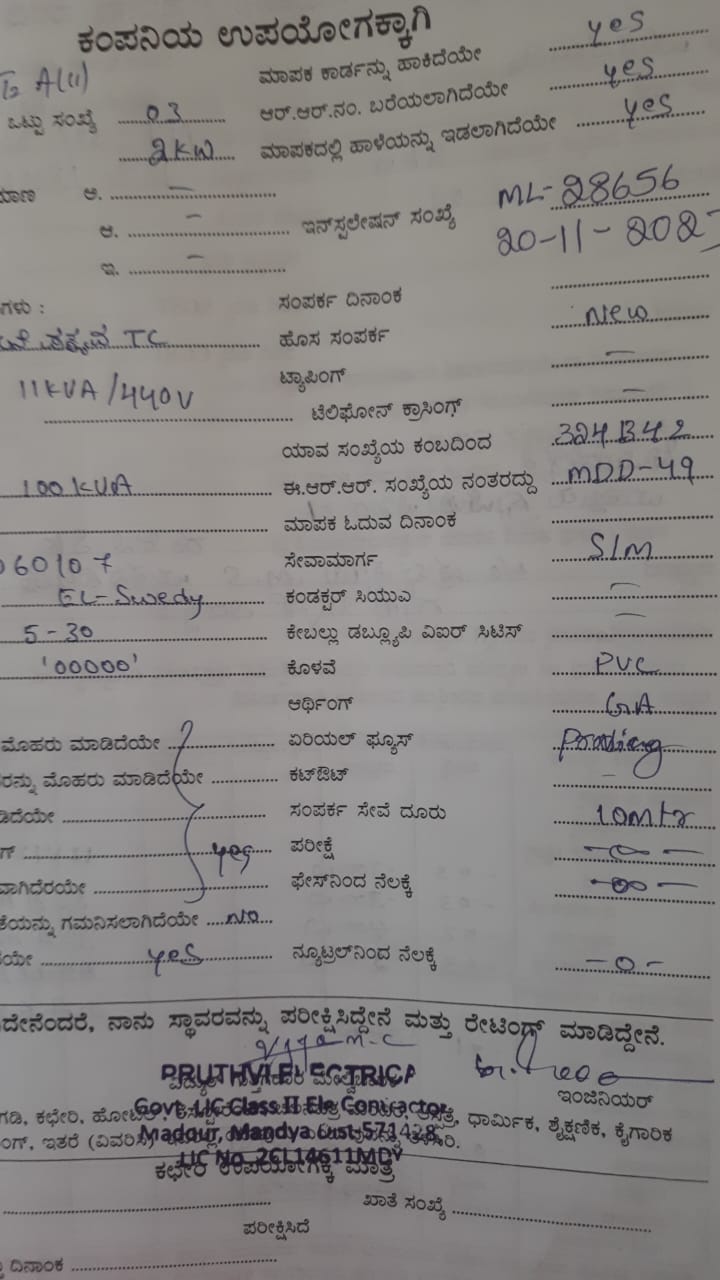 ಕಂಪನಿಯ ಉಪಯೋಗಕ್ಕಾಗಿ
ಮಾಪಕ ಕಾರ್ಡನ್ನು ಹಾಕಿದೆಯೇ yes
ಒಟ್ಟು ಸಂಖ್ಯೆ 03 ಆರ್.ಆರ್.ನಂ. ಬರೆಯಲಾಗಿದೆಯೇ yes
2KW ಮಾಪಕದಲ್ಲಿ ಹಾಳೆಯನ್ನು ಇಡಲಾಗಿದೆಯೇ yes
ಮಾಣ ಅ. —
ಆ. — ಇನ್‌ಸ್ಟಲೇಷನ್ ಸಂಖ್ಯೆ ML-28656
ಇ. — 20-11-202
ಗಳು : ಸಂಪರ್ಕ ದಿನಾಂಕ
TC ಹೊಸ ಸಂಪರ್ಕ New
11KVA/440V ಟ್ಯಾಪಿಂಗ್ —
ಟೆಲಿಫೋನ್ ಕ್ರಾಸಿಂಗ್ —
ಯಾವ ಸಂಖ್ಯೆಯ ಕಂಬದಿಂದ
100KVA ಈ.ಆರ್.ಆರ್. ಸಂಖ್ಯೆಯ ನಂತರದ್ದು MDD-49
ಮಾಪಕ ಓದುವ ದಿನಾಂಕ
60107 ಸೇವಾಮಾರ್ಗ S/M
EL-Swedy ಕಂಡಕ್ಟರ್ ಸಿಯುಎ —
5-30 ಕೇಬಲ್ಲು ಡಬ್ಲ್ಯೂಪಿ ವಿಐರ್ ಸಿಟಿಸ್ —
'00000' ಕೊಳವೆ PVC
ಆರ್ಥಿಂಗ್ GA
ಮೊಹರು ಮಾಡಿದೆಯೇ ಏರಿಯಲ್ ಫ್ಯೂಸ್
ರನ್ನು ಮೊಹರು ಮಾಡಿದೆಯೇ ಕಟ್‌ಔಟ್ —
ಡಿದೆಯೇ ಸಂಪರ್ಕ ಸೇವೆ ದೂರು 10mtr
ಗ್ yes ಪರೀಕ್ಷೆ —0—
ವಾಗಿದೆರಯೇ ಫೇಸ್‌ನಿಂದ ನೆಲಕ್ಕೆ —00—
ಕೆಯನ್ನು ಗಮನಿಸಲಾಗಿದೆಯೇ No
ಯೇ yes ನ್ಯೂಟ್ರಲ್‌ನಿಂದ ನೆಲಕ್ಕೆ —0—
ದೇನೆಂದರೆ, ನಾನು ಸ್ಥಾವರವನ್ನು ಪರೀಕ್ಷಿಸಿದ್ದೇನೆ ಮತ್ತು ರೇಟಿಂಗ್ ಮಾಡಿದ್ದೇನೆ.
PRUTHVI ELECTRICA
ಇಂಜಿನಿಯರ್
Govt. LIC Class II Ele Contractor
ಗಡಿ, ಕಛೇರಿ, ಧಾರ್ಮಿಕ, ಶೈಕ್ಷಣಿಕ, ಕೈಗಾರಿಕ
Maddur, Mandya Dist-571428.
ಂಗ್, ಇತರೆ
LIC No. 2CL14611MDY
ಕಛೇರಿ ಉಪಯೋಗಕ್ಕೆ ಮಾತ್ರ
ಖಾತೆ ಸಂಖ್ಯೆ
ಪರೀಕ್ಷಿಸಿದೆ
ದಿನಾಂಕ